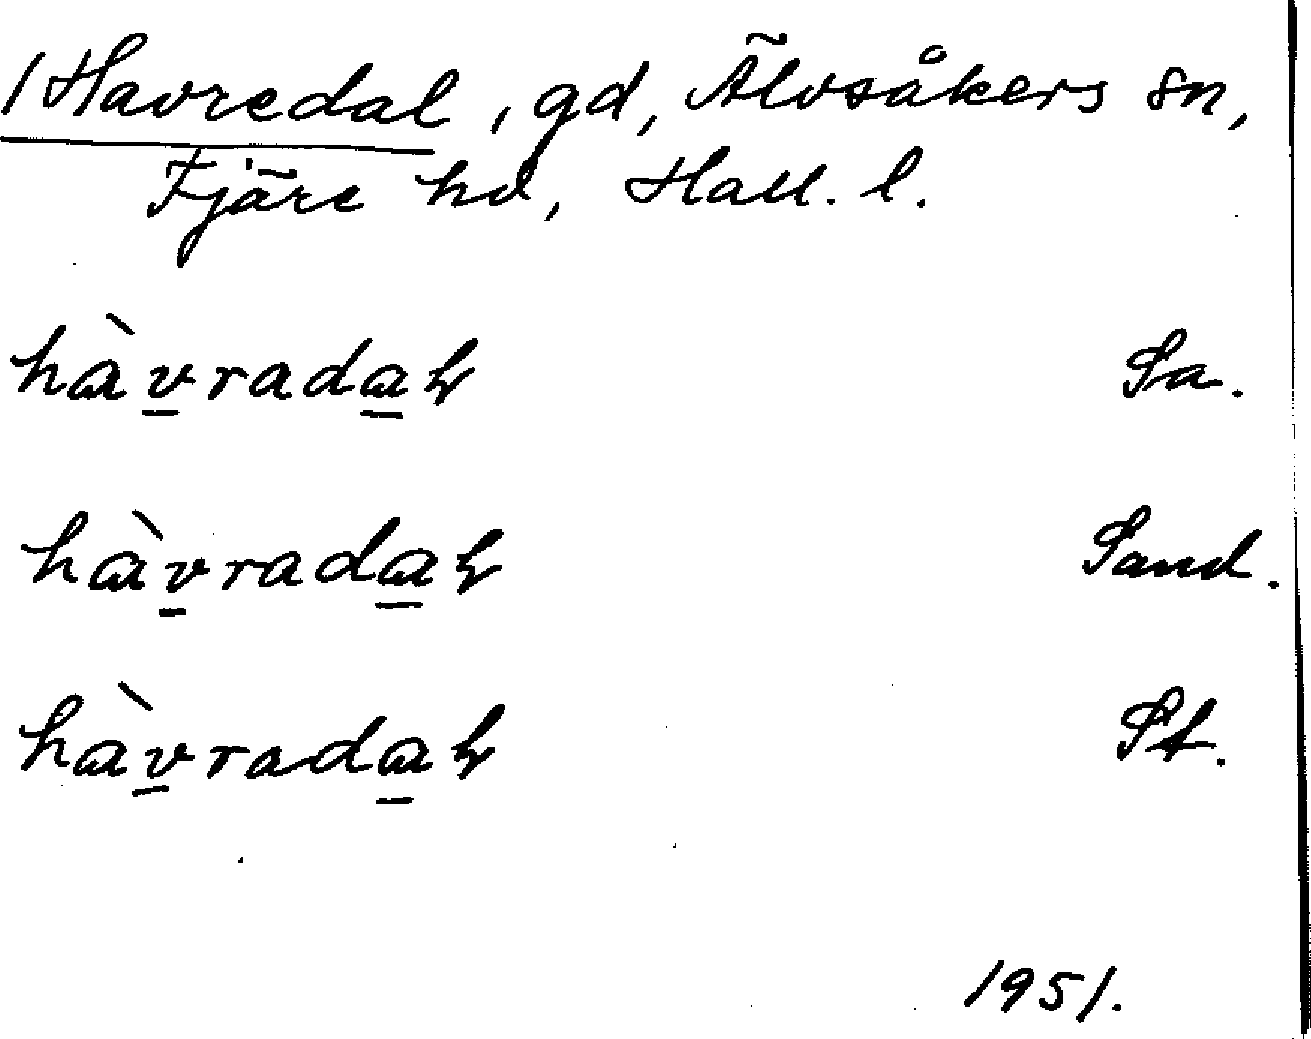 /Havredal, gd, Älvsåkers sn,
Fjäre hd, Hall. l.
hàvradaɫ Sa.
hàvradaɫ Sand.
hàvradaɫ St.
1951.